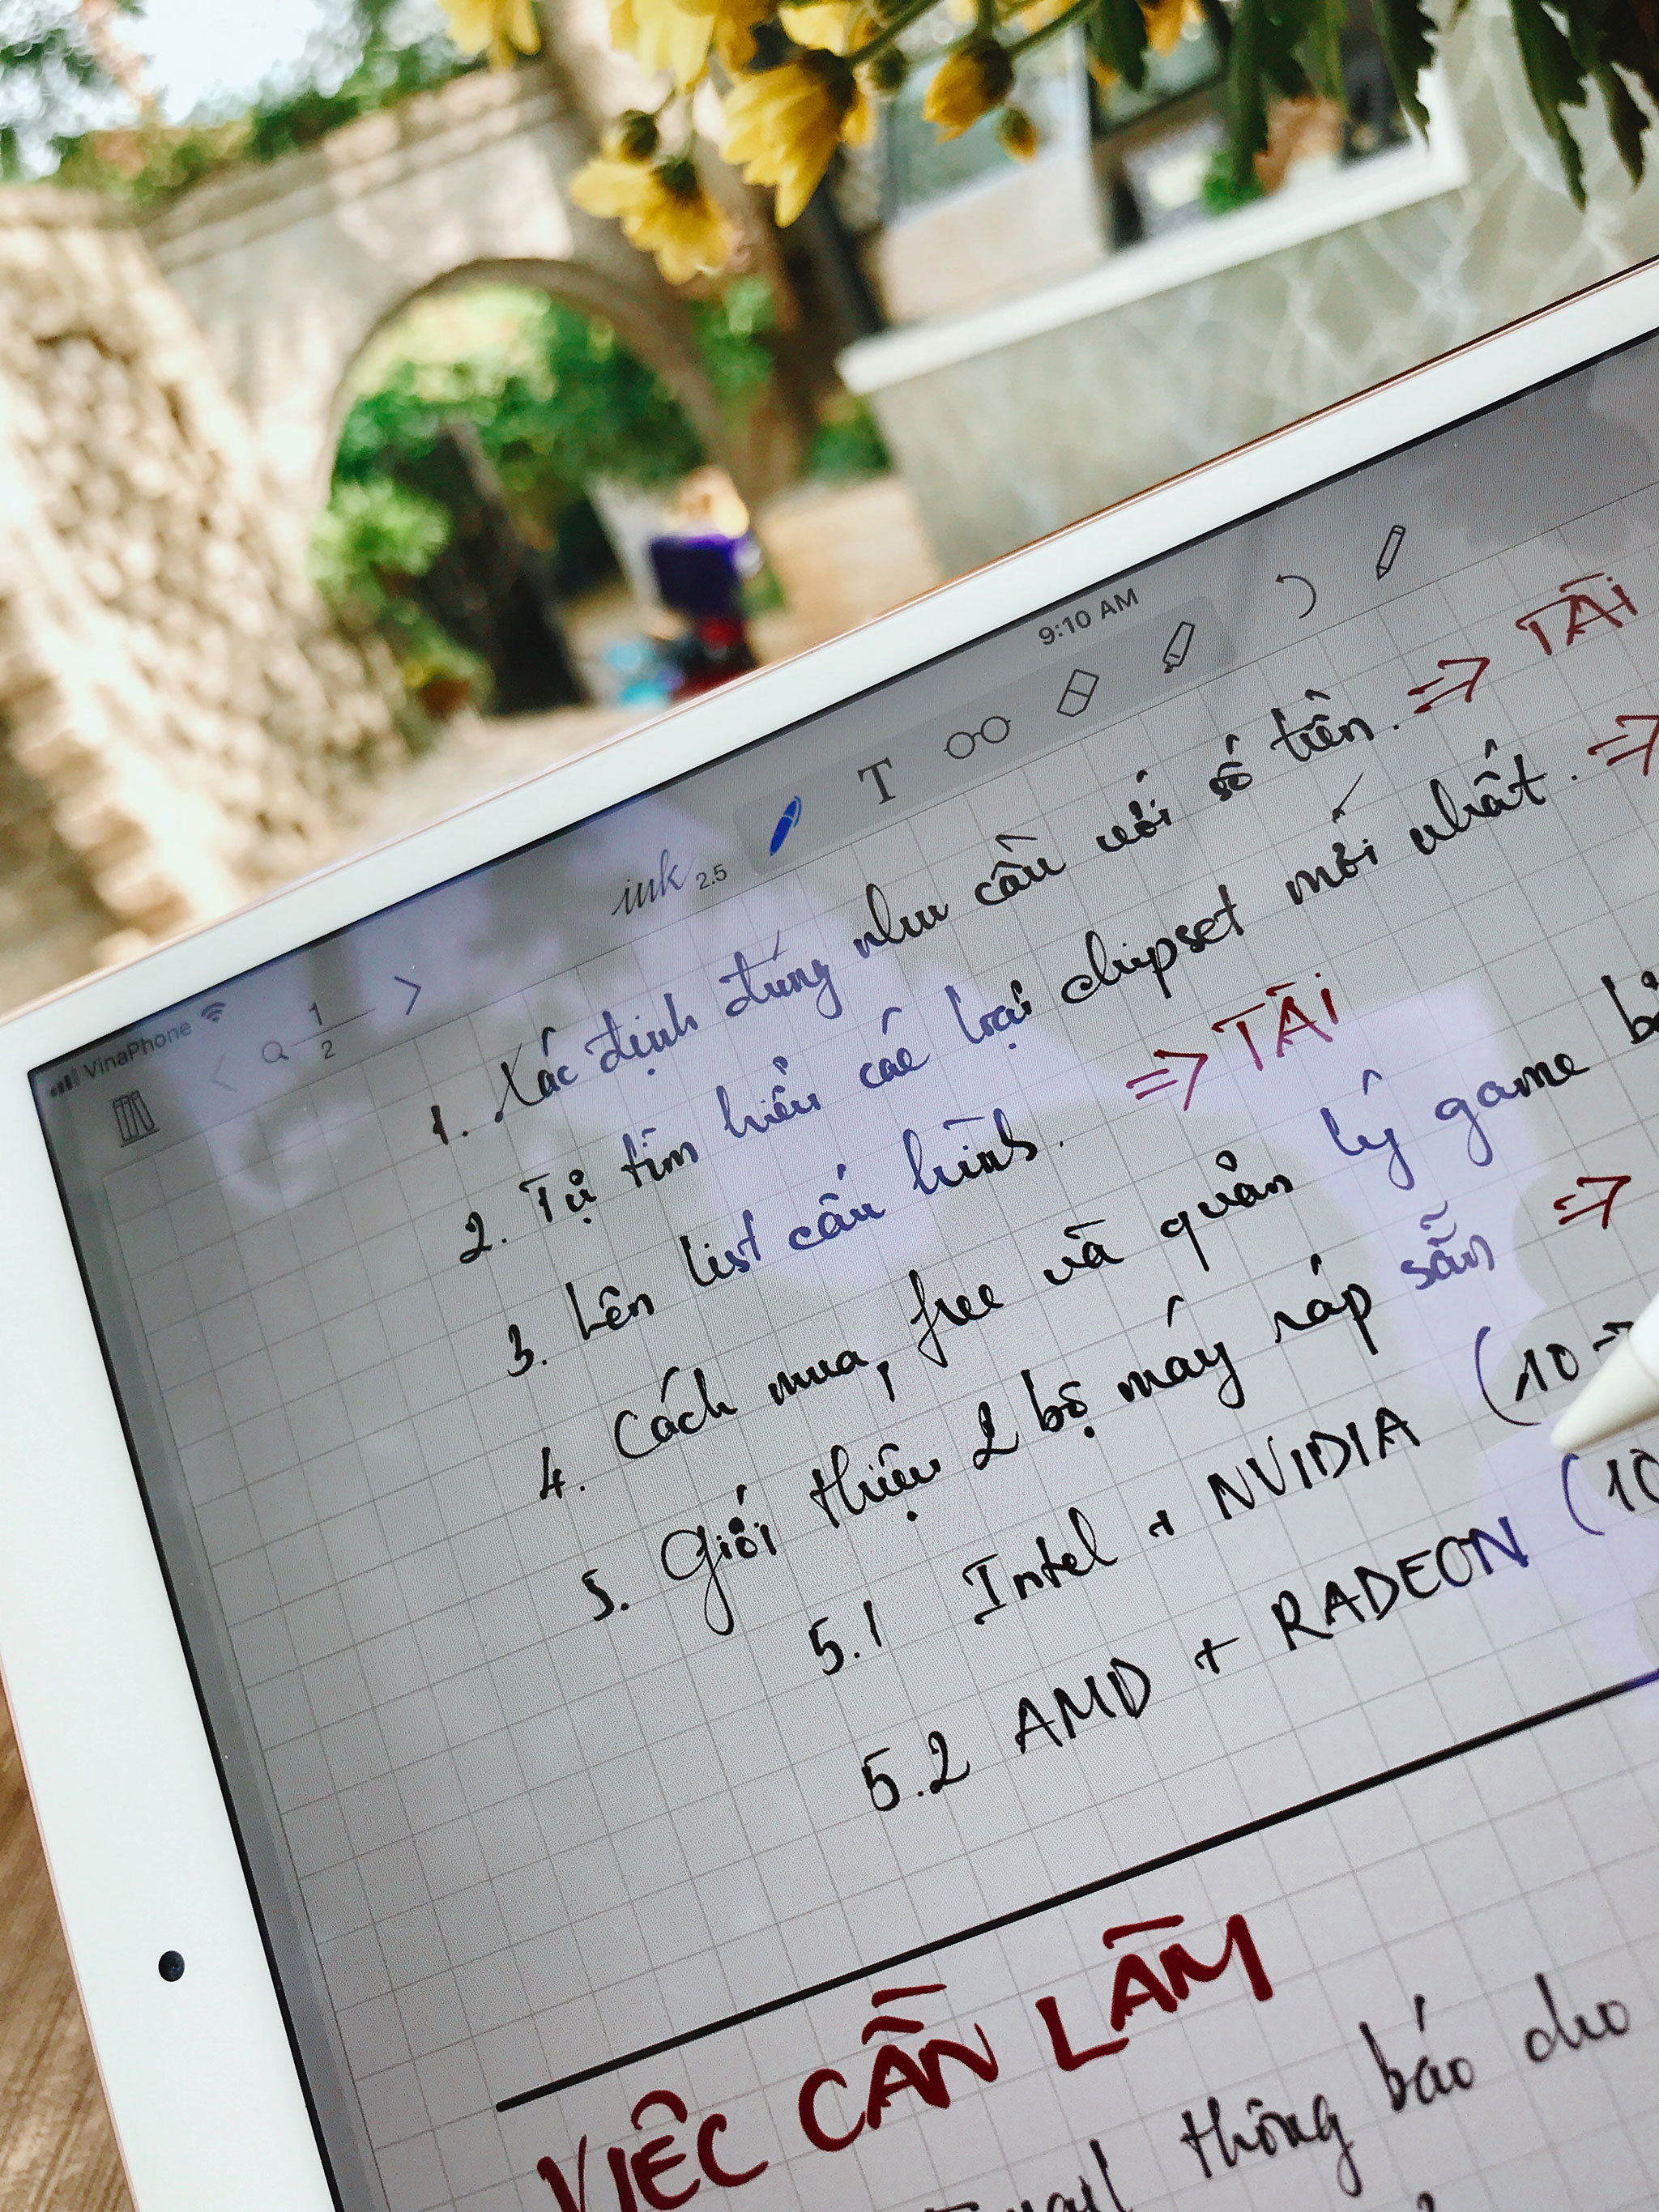 9:10 AM
VinaPhone
1
2
ink 2.5
T
1. Xác định đúng nhu cầu với số tiền. => TÀI
2. Tự tìm hiểu các loại chipset mới nhất. =>
3. Lên list cấu hình. => TÀI
4. Cách mua, free và quản lý game
5. Giới thiệu 2 bộ máy ráp sẵn =>
5.1 Intel + NVIDIA (10 →
5.2 AMD + RADEON (10
VIỆC CẦN LÀM
thông báo cho